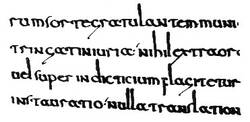 rumfortegratulantemmuni
tringatiniuria nihilextraor
uelsuperindicticium flagitetur
instauratio nulla translation